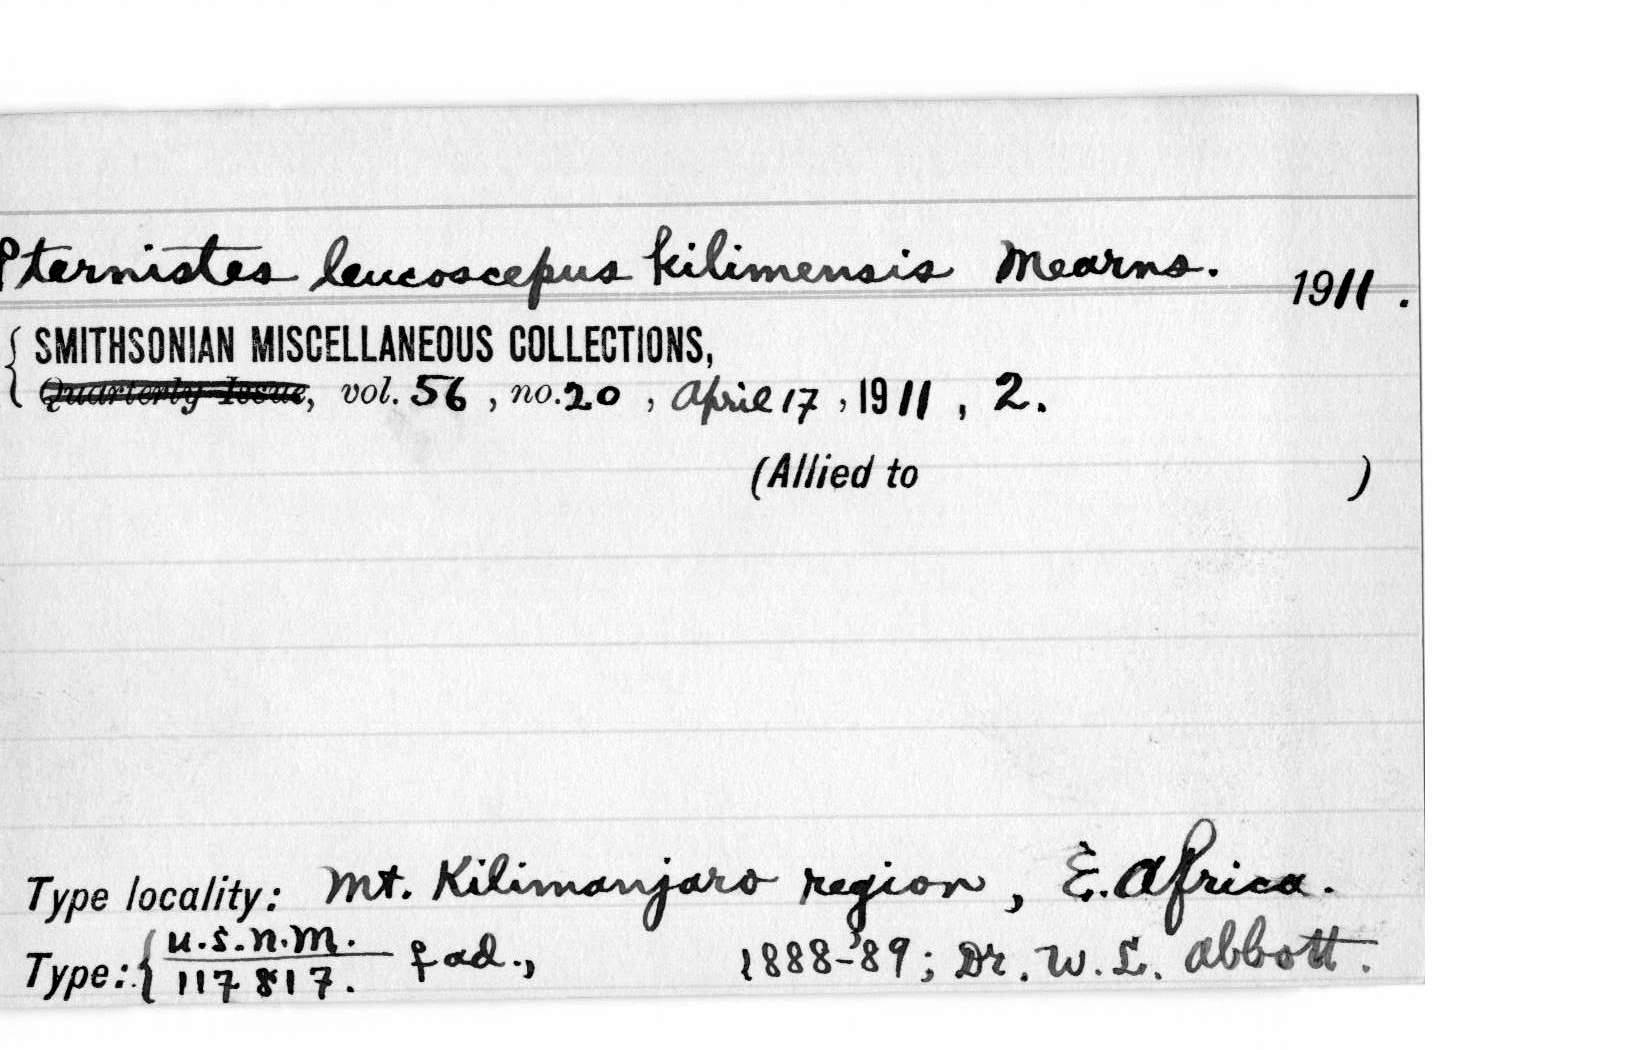 Pternistes leucoscepus kilimensis Mearns. 1911.
SMITHSONIAN MISCELLANEOUS COLLECTIONS,
Quarterly Issue, vol. 56, no. 20, April 17, 1911, 2.
(Allied to )
Type locality: Mt. Kilimanjaro region, E. Africa.
Type: { U.S.N.M.
117817. ♀ ad., 1888-'89; Dr. W. L. Abbott.